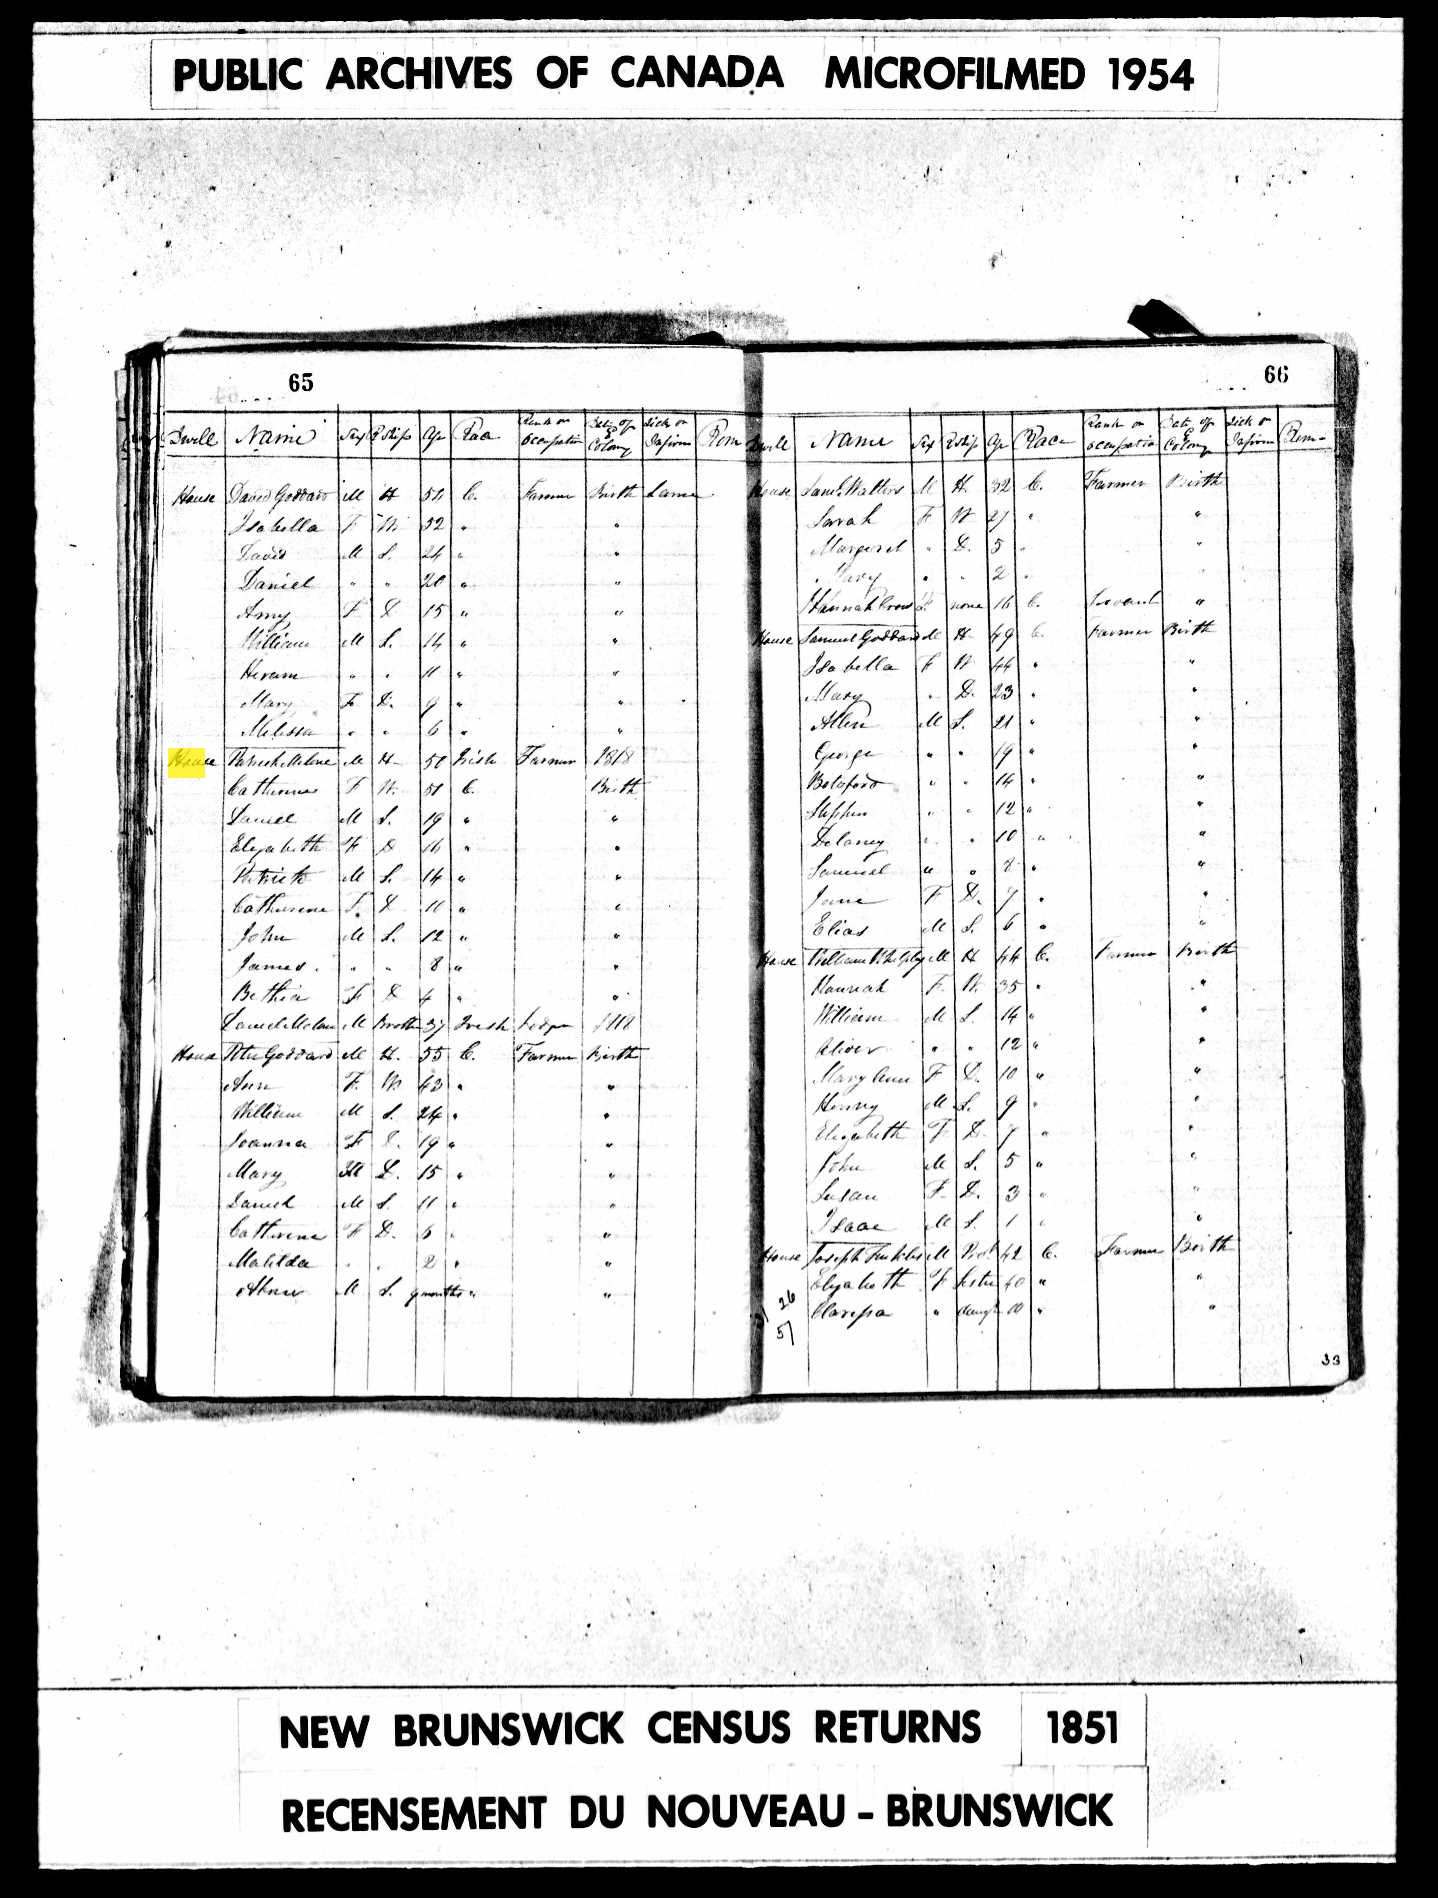 PUBLIC ARCHIVES OF CANADA MICROFILMED 1954
65
Dwell Name Sex R.Ship Age Race Rank or occupation Date of Colony Sick or Infirm Rem
House David Goddard M H C. Farmer Birth Lame
Isabella F W 52 "
David M S. 24 "
Daniel " " 20 " "
Amy F D 15 " "
William M S. 14 " "
Hiram " " 11 " "
Mary F D. 9 " "
Melissa " " 6 " "
House Patrick M H 50 Irish Farmer 1818
Catherine F W. 51 C. Birth
Daniel M S. 19 " "
Elizabeth F D 16 " "
Patrick M S. 14 " "
Catherine F. D 11 " "
John M S. 12 " "
James " " 8 " "
Bethia F D 4 " "
M Brother 37 Irish
House Peter Goddard M H. 55 C. Farmer Birth
Ann F. W 43 " "
William M S. 24 " "
Joanna F D. 19 " "
Mary D. 15 " "
Daniel M S. 11 " "
Catherine F D. 6 " "
Matilda " " 2 " "
Abner M S. 9 months " "
66
Dwell Name Sex R.Ship Age Race Rank or occupation Date of Colony Sick or Infirm Rem
House Saml. Watters M H. 32 C. Farmer Birth
Sarah F W 27 " "
Margaret " D. 5 " "
Mary " " 2 " "
Hannah F. none 16 C. Servant "
House Samuel Goddard M H 49 C. Farmer Birth
Isabella F W 44 " "
Mary " D. 23 " "
Allen M S. 21 " "
George " " 19 " "
Botsford " " 14 " "
Stephen " " 12 " "
Delaney " " 10 " "
Samuel " " " "
Jane F D. 7 " "
Elias M S. 6 " "
House William M H 44 C. Farmer Birth
Hannah F. W. 35 " "
William M S. 14 " "
Oliver " " 12 " "
Mary Ann F D. 10 " "
Henry M S. 9 " "
Elizabeth F D. 7 " "
John M S. 5 " "
Susan F. D. 3 " "
Isaac M S. 1 " "
House Joseph M 42 C. Farmer Birth
Elizabeth F Sister 40 " "
Clarissa " daugh 10 " "
26
57
33
NEW BRUNSWICK CENSUS RETURNS 1851
RECENSEMENT DU NOUVEAU - BRUNSWICK